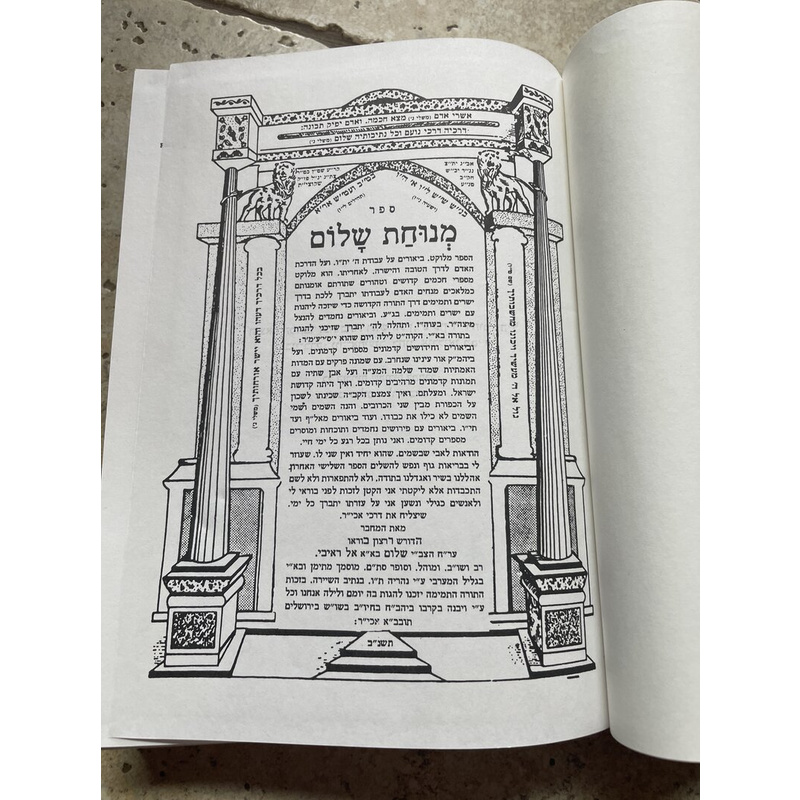 אשרי אדם (משלי ג׳) מצא חכמה, ואדם יפיק תבונה:
דרכיה דרכי נועם וכל נתיבותיה שלום (משלי ג׳)
ספר
מְנוּחַת שָׁלוֹם
הספר מלוקט, ביאורים על עבודת ה׳ ית״ו, ועל הדרכת
האדם לדרך הטובה והישרה, לאחריתו. הוא מלוקט
מספרי חכמים קדושים וטהורים שתורתם אומנותם
כמלאכים מנחים האדם לעבודתו יתברך ללכת בדרך
ישרים ותמימים דרך התורה הקדושה כדי שיזכה ליהנות
עם ישרים ותמימים, בג״ע, וביאורים נחמדים להנצל
מיצה״ר, בעוה״ז, ותהלה לה׳ יתברך שזיכני להגות
בתורה בא״י, הקוה״ט לילה ויום שהוא יס״יע״מ״ר:
וביאורים וחידושים קדמונים מספרים קדמונים, ועל
ביהמ״ק אור עינינו שנחרב, עם שמונה פרקים עם המדות
האמתיות שמדד שלמה המע״ה ועל אבן שתיה עם
תמונות קדמונים מרהיבים קדומים, ואיך היתה קדושת
ישראל, ומעלתם, ואיך צמצם הקב״ה שכינתו לשכון
על הכפורת מבין שני הכרובים, והנה השמים ושמי
השמים לא כילו את כבודו, ועוד ביאורים מאל״ף ועד
תי״ו, ביאורים עם פירושים נחמדים ותוכחות ומוסרים
מספרים קדומים, ואני נותן בכל רגע כל ימי חיי,
הודאות לאבי שבשמים, שהוא יחיד ואין שני לו, שעוזר
לי בבריאות גוף ונפש להשלים הספר השלישי האחרון,
אהללנו בשיר ואגדלנו בתודה, ולא להתפארות ולא לשם
התכבדות אלא ליקטתי אני הקטן לזכות לפני בוראי לי
ולאנשים כגילי ונשען אני על עזרתו יתברך כל ימי,
שיצליח את דרכי אכי״ר,
מאת המחבר
הדורש רצון בוראו
ער״ח הצב״י שלום בא״א אל ראיבי,
רב ושו״ב, ומוהל, וסופר סת״ם, מוסמך מתימן ובא״י
בגליל המערבי ע״י נהריה ת״ו, בנתיב השיירה, בזכות
התורה התמימה יזכנו להגות בה יומם ולילה אנחנו וכל
ע״י ויבנה בקרבו ביהב״ח בחיו״ב בשו״ש בירושלים
תובב״א אכי״ר:
תשנ״ב
בכל דרכיך דעהו והוא יישר אורחותיך (משלי ג׳)
גול אל ה׳ מעשיך ויכונו מחשבותיך